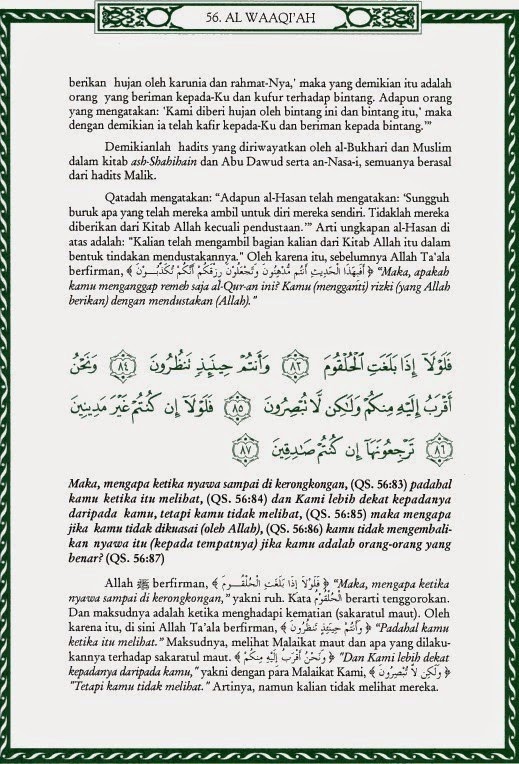 56. AL WAAQI'AH
berikan hujan oleh karunia dan rahmat-Nya,' maka yang demikian itu adalah
orang yang beriman kepada-Ku dan kufur terhadap bintang. Adapun orang
yang mengatakan: 'Kami diberi hujan oleh bintang ini dan bintang itu,' maka
dengan demikian ia telah kafir kepada-Ku dan beriman kepada bintang.'"
Demikianlah hadits yang diriwayatkan oleh al-Bukhari dan Muslim
dalam kitab ash-Shahihain dan Abu Dawud serta an-Nasa-i, semuanya berasal
dari hadits Malik.
Qatadah mengatakan: "Adapun al-Hasan telah mengatakan: 'Sungguh
buruk apa yang telah mereka ambil untuk diri mereka sendiri. Tidaklah mereka
diberikan dari Kitab Allah kecuali pendustaan.'" Arti ungkapan al-Hasan di
atas adalah: "Kalian telah mengambil bagian kalian dari Kitab Allah itu dalam
bentuk tindakan mendustakannya." Oleh karena itu, sebelumnya Allah Ta'ala
berfirman, ﴿ أَفَبِهَذَا الْحَدِيثِ أَنتُم مُّدْهِنُونَ وَتَجْعَلُونَ رِزْقَكُمْ أَنَّكُمْ تُكَذِّبُونَ ﴾ "Maka, apakah
kamu menganggap remeh saja al-Qur-an ini? Kamu (mengganti) rizki (yang Allah
berikan) dengan mendustakan (Allah)."
فَلَوْلَآ إِذَا بَلَغَتِ الْحُلْقُومَ ﴿٨٣﴾ وَأَنتُمْ حِينَئِذٍ تَنظُرُونَ ﴿٨٤﴾ وَنَحْنُ
أَقْرَبُ إِلَيْهِ مِنكُمْ وَلَكِن لَّا تُبْصِرُونَ ﴿٨٥﴾ فَلَوْلَآ إِن كُنتُمْ غَيْرَ مَدِينِينَ
﴿٨٦﴾ تَرْجِعُونَهَآ إِن كُنتُمْ صَٰدِقِينَ ﴿٨٧﴾
Maka, mengapa ketika nyawa sampai di kerongkongan, (QS. 56:83) padahal
kamu ketika itu melihat, (QS. 56:84) dan Kami lebih dekat kepadanya
daripada kamu, tetapi kamu tidak melihat, (QS. 56:85) maka mengapa
jika kamu tidak dikuasai (oleh Allah), (QS. 56:86) kamu tidak mengembali-
kan nyawa itu (kepada tempatnya) jika kamu adalah orang-orang yang
benar? (QS. 56:87)
Allah ﷻ berfirman, ﴿ فَلَوْلَا إِذَا بَلَغَتِ الْحُلْقُومَ ﴾ "Maka, mengapa ketika
nyawa sampai di kerongkongan," yakni ruh. Kata الْحُلْقُومَ berarti tenggorokan.
Dan maksudnya adalah ketika menghadapi kematian (sakaratul maut). Oleh
karena itu, di sini Allah Ta'ala berfirman, ﴿ وَأَنتُمْ حِينَئِذٍ تَنظُرُونَ ﴾ "Padahal kamu
ketika itu melihat." Maksudnya, melihat Malaikat maut dan apa yang dilaku-
kannya terhadap sakaratul maut. ﴿ وَنَحْنُ أَقْرَبُ إِلَيْهِ مِنكُمْ ﴾ "Dan Kami lebih dekat
kepadanya daripada kamu," yakni dengan para Malaikat Kami, ﴿ وَلَكِن لَّا تُبْصِرُونَ ﴾
"Tetapi kamu tidak melihat." Artinya, namun kalian tidak melihat mereka.